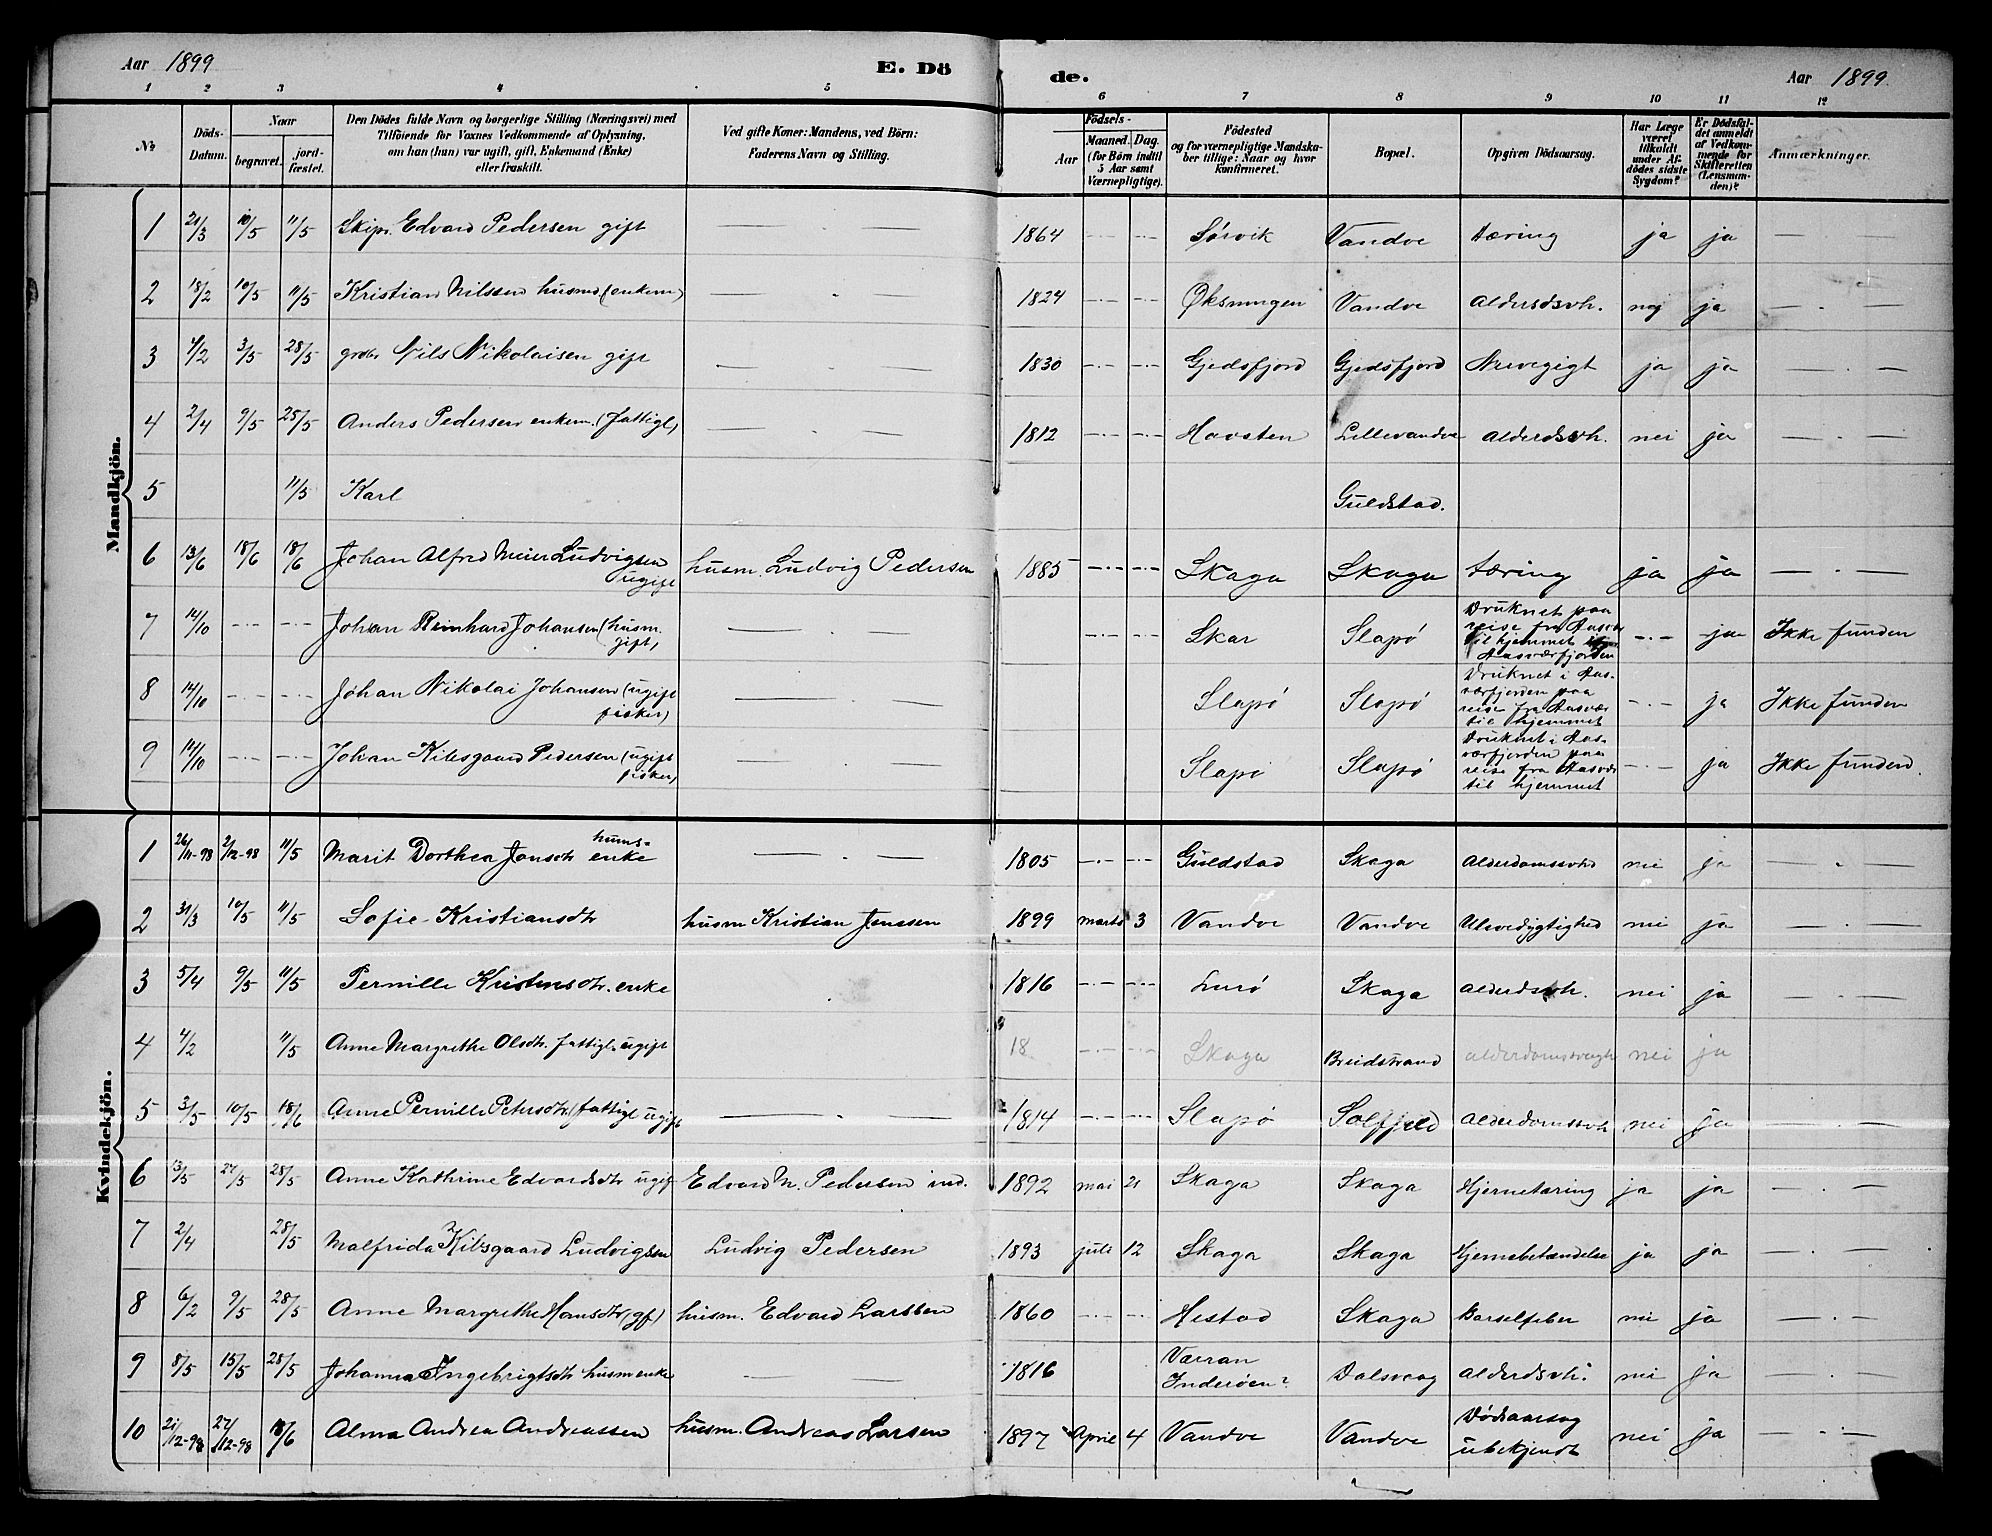 Aar 1899 E. Dö de. Aar 1899.
1 2 3 4 5 6 7 8 9 10 11 12
No
Döds-Datum.
Naar
begravet.
jord-fæstet.
Den Dödes fulde Navn og borgerlige Stilling (Næringsvei) med
Tilföiende for Voxnes Vedkommende af Oplysning,
om han (hun) var ugift, gift, Enkemand (Enke)
eller fraskilt.
Ved gifte Koner: Mandens, ved Börn:
Faderens Navn og Stilling.
Födsels-
Aar
Maaned. Dag.
(for Börn indtil
5 Aar samt
Værnepligtige).
Födested
og for værnepligtige Mandska-
ber tillige: Naar og hvor
konfirmeret.
Bopæl.
Opgiven Dödsaarsag.
Har Læge
været
tilkaldt
under Af-
dödes sidste
Sygdom?
Er Dödsfal-
det anmeldt
af Vedkom-
mende for
Skifteretten
(Lensman-
den)?
Anmærkninger.
Mandkjön.
1 21/3 10/5 11/5 Skipr. Edvard Pedersen gift — . — 1864 -.- -.- Sørvik Vandve tæring ja ja — . —
2 18/2 10/5 11/5 Kristian Nilssen husmd. (enkem) — . — 1824 -.- -.- Øksningen Vandve Alderdsvh. nej ja — . —
3 4/2 3/5 28/5 Nils Nikolaisen gift — . — 1830 -.- -.- Gjedsfjord Gjedsfjord Nrevegigt ja ja — . —
4 2/4 9/5 25/5 Anders Pedersen enkem. (fattigl) — . — 1812 -.- -.- Havsten Lillevandve Alderdssvh. nei ja — . —
5 11/5 Karl Guldstad.
6 13/6 18/6 18/6 Johan Alfred Meier Ludvigsen
ugift husm. Ludvig Pedersen 1885 -.- -.- Skaga Skaga tæring ja ja — . —
7 14/10 -.- -.- Johan Reinhard Johansen (husm.
gift) — . — Skar Slapø Druknet paa
reise fra Aasvær
til hjemmet i
Aasværfjorden -.- ja Ikke funden
8 14/10 -.- -.- Johan Nikolai Johansen (ugift
fisker) — . — Slapø Slapø Druknet i Aas-
værfjorden paa
reise fra Aasvær
til hjemmet -.- ja Ikke funden
9 14/10 -.- -.- Johan Kilsgaard Pedersen (ugift
fisker) — . — Slapø Slapø Druknet i Aas-
værfjorden paa
reise fra Aasvær
til hjemmet -.- ja Ikke funden.
Kvindekjön.
1 26/11-98 2/12-98 11/5 Marit Dorthea Jonsdtr husm-
enke — . — 1805 -.- -.- Guldstad Skaga Alderdomssvhd nei ja — . —
2 31/3 10/5 11/5 Sofie Kristiansdtr husm Kristian Jenssen 1899 marts 3 Vandve Vandve Ulevedygtighed nei ja — . —
3 5/4 9/5 11/5 Pernille Kristensdtr. enke 1816 -.- -.- Lurø Skaga Alderdsvh. nei ja — . —
4 4/2 11/5 Anne Margrethe Olsdtr. fattigl. ugift 18 -.- -.- Skaga Breidstrand alderdomssvagh nei ja
5 3/5 10/5 18/6 Anne Pernille Petersdtr (fattigl ugift — . — 1814 -.- -.- Slapø Solfjeld Alderdomssvh nei ja — . —
6 13/5 27/5 28/5 Anne Kathrine Edvardsdtr ugift Edvard M. Pedersen ind. 1892 mai 21 Skaga Skaga Hjernetæring ja ja — . —
7 2/4 28/5 Malfrida Kilsgaard Ludvigsen Ludvig Pedersen 1893 juli 12 Skaga Skaga Hjernebetændelse ja ja — . —
8 6/2 9/5 28/5 Anne Margrethe Hansdtr (gf) husm. Edvard Larssen 1860 -.- -.- Hestad Skaga Barselfeber nei ja — . —
9 8/5 15/5 28/5 Johanna Ingebrigtsdtr husm enke — — 1816 Værran
Inderøen? Dalsvaag Alderdsvh. nei ja — . —
10 21/12-98 27/12-98 18/6 Alma Andrea Andreassen husm. Andreas Larsen 1897 April 4 Vandve Vandve Dødsaarsag
ubekjendt nei ja — . —